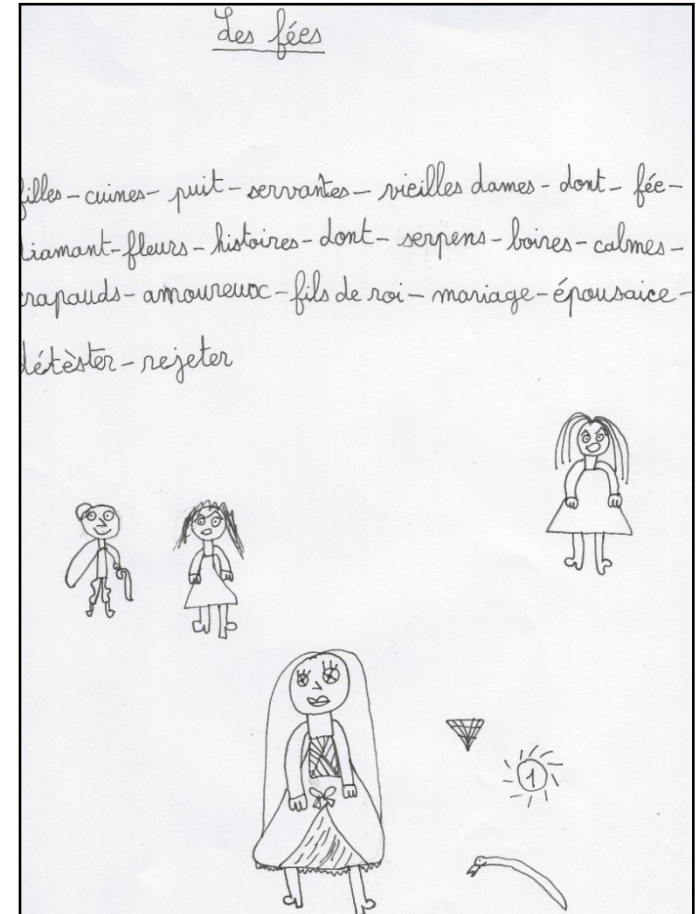 Les fées
filles - cuines - puit - servantes - vieilles dames - dont - fée -
diamant - fleurs - histoires - dont - serpens - boires - calmes -
crapauds - amoureux - fils de roi - mariage - épousaice -
détèster - rejeter
1